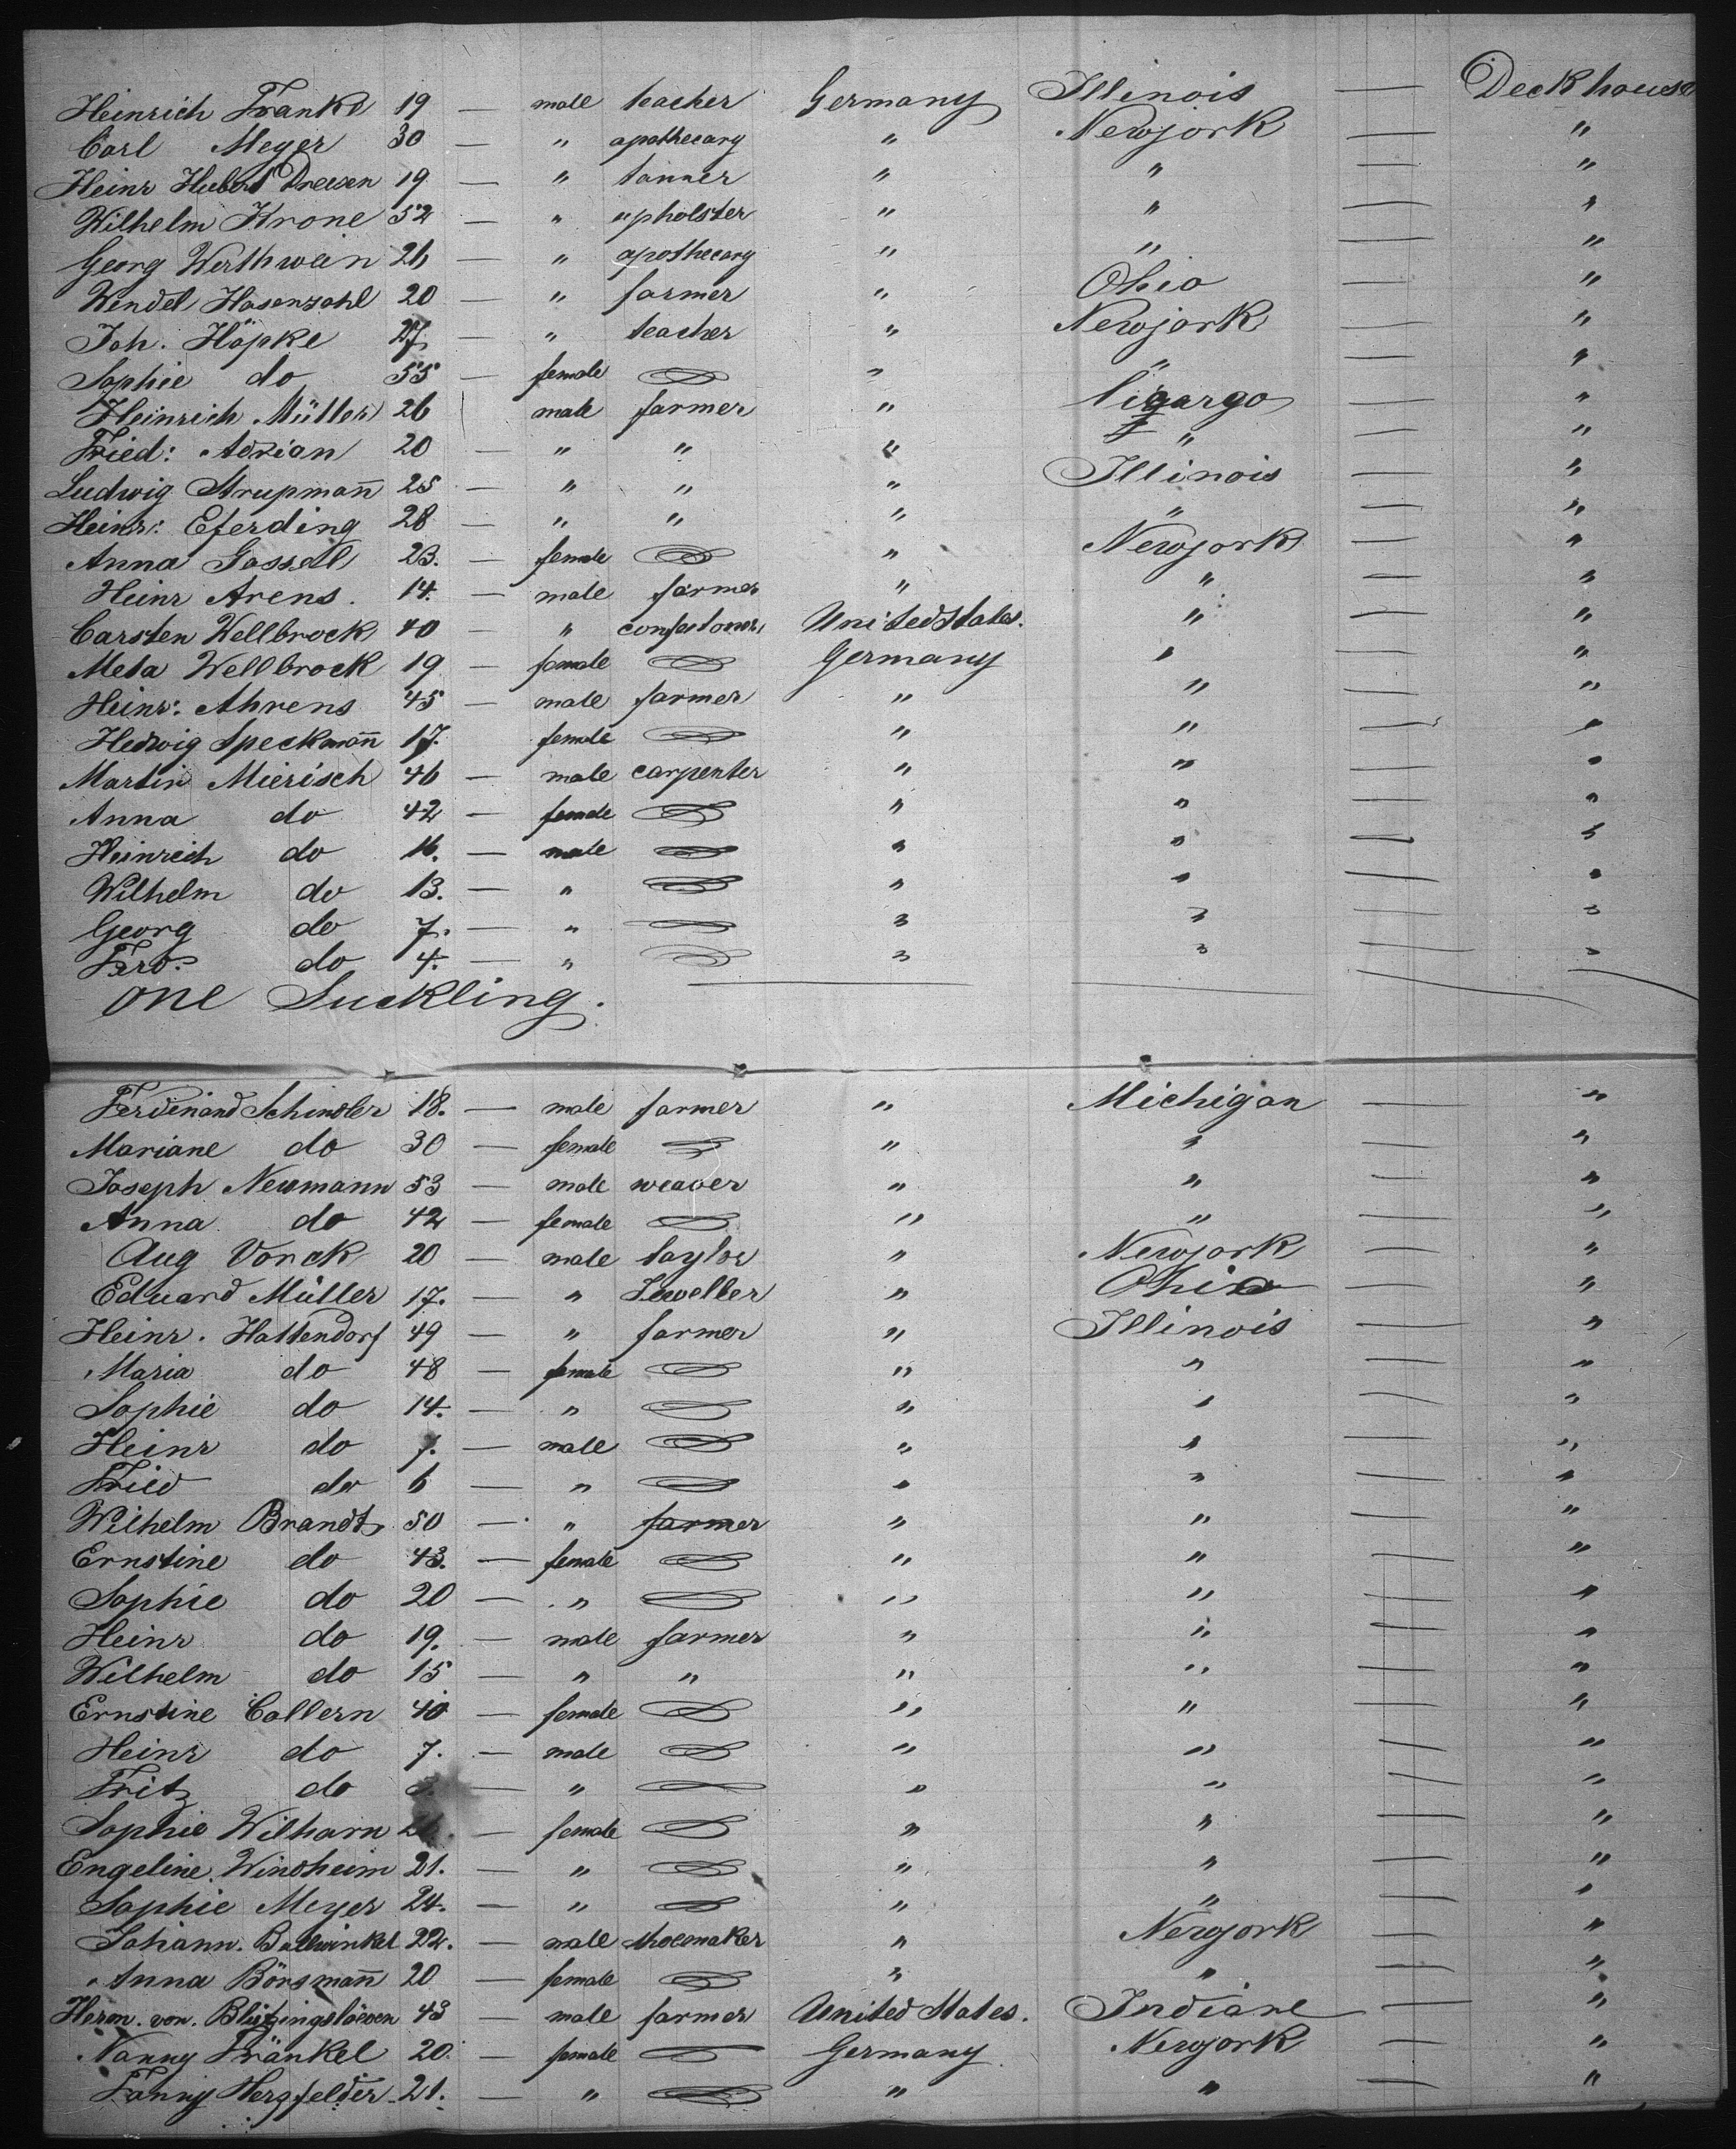 Heinrich Franke 19 — male teacher Germany Illinois — Deckhouse
Carl Meyer 30 — " apothecary " Newjork — "
Heinr Hubert Dreesen 19 — " tanner " " — "
Wilhelm Krone 52 — " upholster " " — "
Georg Werthwein 26 — " apothecary " " — "
Wendel Hasenzahl 20 — " farmer " Ohio — "
Joh. Höpke 27 — " teacher " Newjork — "
Sophie do 55 — female " " — "
Heinrich Müller 26 male farmer " — "
Fried: Adrian 20 — " " " " — "
Ludwig Strupmann̄ 25 — " " " Illinois — "
Heinr: Eferding 28 — " " " " — "
Anna 23. — female " Newjork — "
Heinr Arens. 14. — male farmer " " — "
Carsten Wellbrock 40 — " United States. " — "
Meta Wellbrock 19 — female Germany " — "
Heinr: Ahrens 45 — male farmer " " — "
Hedwig Speckmann̄ 17. female " " — "
Martin Mierisch 46 — male carpenter " " — "
Anna do 42 — female " " — "
Heinrich do 16. — male " " — "
Wilhelm do 13. — " " " — "
Georg do 7. — " " " — "
do 4. — " " " — "
one Suckling.
Ferdinand Schindler 18. — male farmer " Michigan — "
Mariane do 30 — female " " — "
Joseph Newmann 53 — male weaver " " — "
Anna do 42 — female " " — "
Aug Vorck 20 — male taylor " Newjork — "
Eduard Müller 17. — " Jeweller " Ohio — "
Heinr. Hattendorf 49 — " farmer " Illinois — "
Maria do 48 — female " " — "
Sophie do 14. — " " " — "
Heinr do 7. — male " " — "
Fried do 6 — " " " — "
Wilhelm Brandt 50 — " farmer " " — "
Ernstine do 43. — female " " — "
Sophie do 20 — " " " — "
Heinr do 19. — male farmer " " — "
Wilhelm do 15 — " " " " — "
Ernstine Collern 40 — female " " — "
Heinr do 7. — male " " — "
Fritz do — " " " — "
Sophie Wilharn — female " " — "
Engeline Windheim 21. — " " " — "
Sophie Meyer 24. — " " " — "
Johann. Ballwinkel 22. — male shoemaker " Newjork — "
Anna Börsmann̄ 20 — female " " — "
Herm. von. 43 — male farmer United States. Indiane — "
Nanny Fränkel 20. — female Germany Newjork — "
Fanny Hergfelder 21. — " " " — "